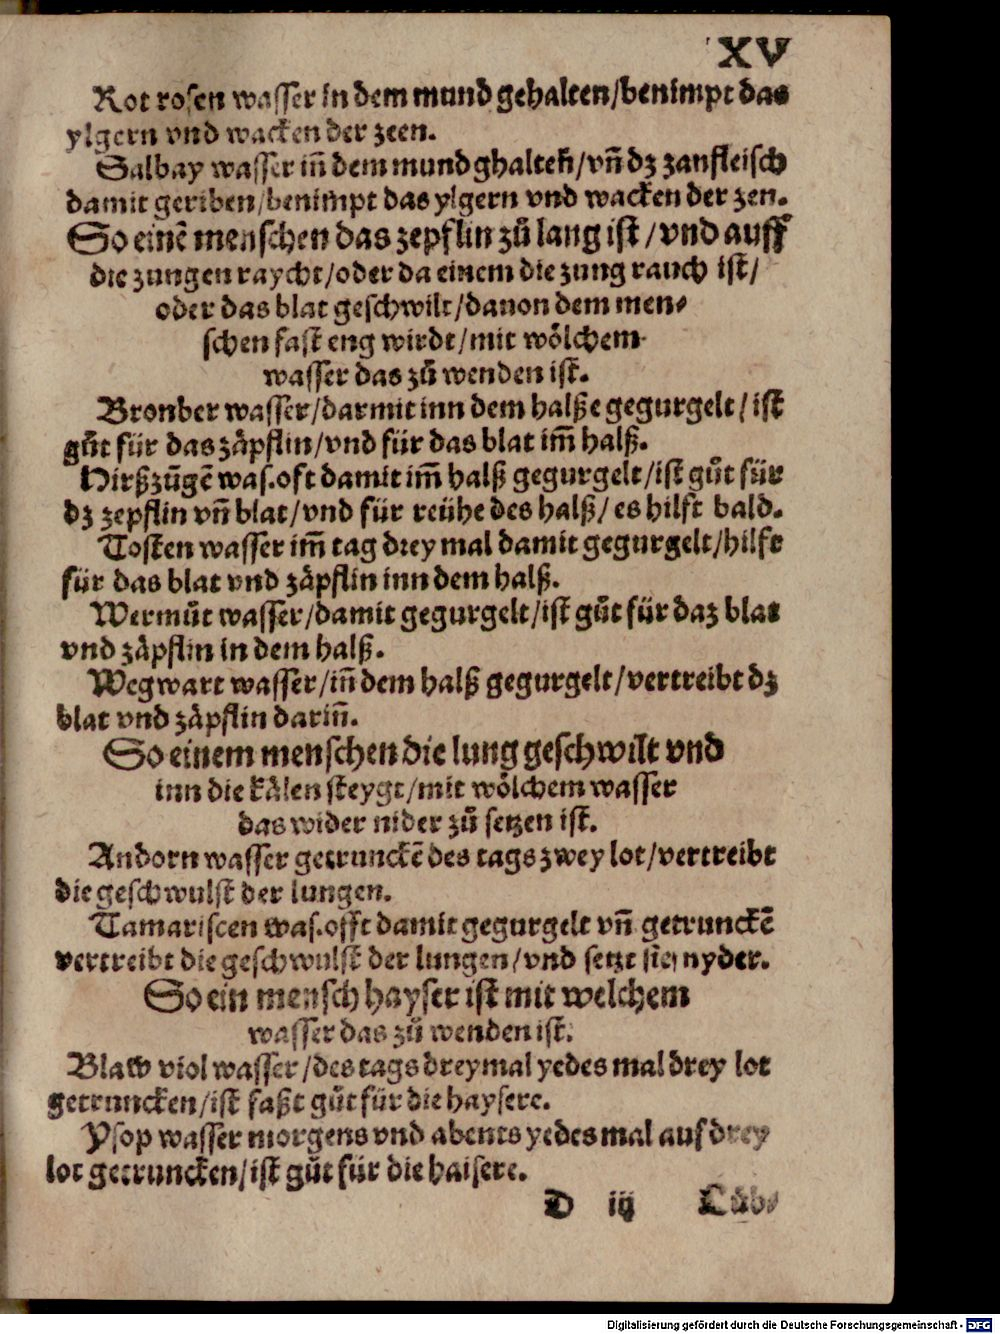 XV
Rot rosen wasser in dem mund gehalten/benimpt das
ylgern vnd wacken der zeen.
Salbay wasser iñ dem mund ghalteñ/vñ dz zanfleisch
damit geriben/benimpt das ylgern vnd wacken der zen.
So einē menschen das zepflin zů lang ist/vnd auff
die zungen raycht/oder da einem die zung rauch ist/
oder das blat geschwilt/dauon dem men⸗
schen fast eng wirdt/mit wȯlchem
wasser das zů wenden ist.
Bronber wasser/darmit inn dem halße gegurgelt/ist
gůt für das zåpflin/vnd für das blat im̃ halß.
Hirßzůgē was.oft damit im̃ halß gegurgelt/ist gůt für
dz zepflin vñ blat/vnd für reühe des halß/es hilft bald.
Tosten wasser im̃ tag drey mal damit gegurgelt/hilft
für das blat vnd zåpflin inn dem halß.
Wermůt wasser/damit gegurgelt/ist gůt für daz blat
vnd zåpflin in dem halß.
Wegwart wasser/iñ dem halß gegurgelt/vertreibt dz
blat vnd zåpflin dariñ.
So einem menschen die lung geschwilt vnd
inn die kålen steygt/mit wȯlchem wasser
das wider nider zů setzen ist.
Andorn wasser getrunckē des tags zwey lot/vertreibt
die geschwulst der lungen.
Tamariscen was.offt damit gegurgelt vñ getrunckē
vertreibt die geschwulst der lungen/vnd setzt sie nyder.
So ein mensch hayser ist mit welchem
wasser das zů wenden ist.
Blaw viol wasser/des tags dreymal yedes mal drey lot
getruncken/ist faßt gůt für die haysere.
Ysop wasser morgens vnd abents yedes mal auf drey
lot getruncken/ist gůt für die haisere.
D iij Lůb⸗
Digitalisierung gefördert durch die Deutsche Forschungsgemeinschaft - DFG